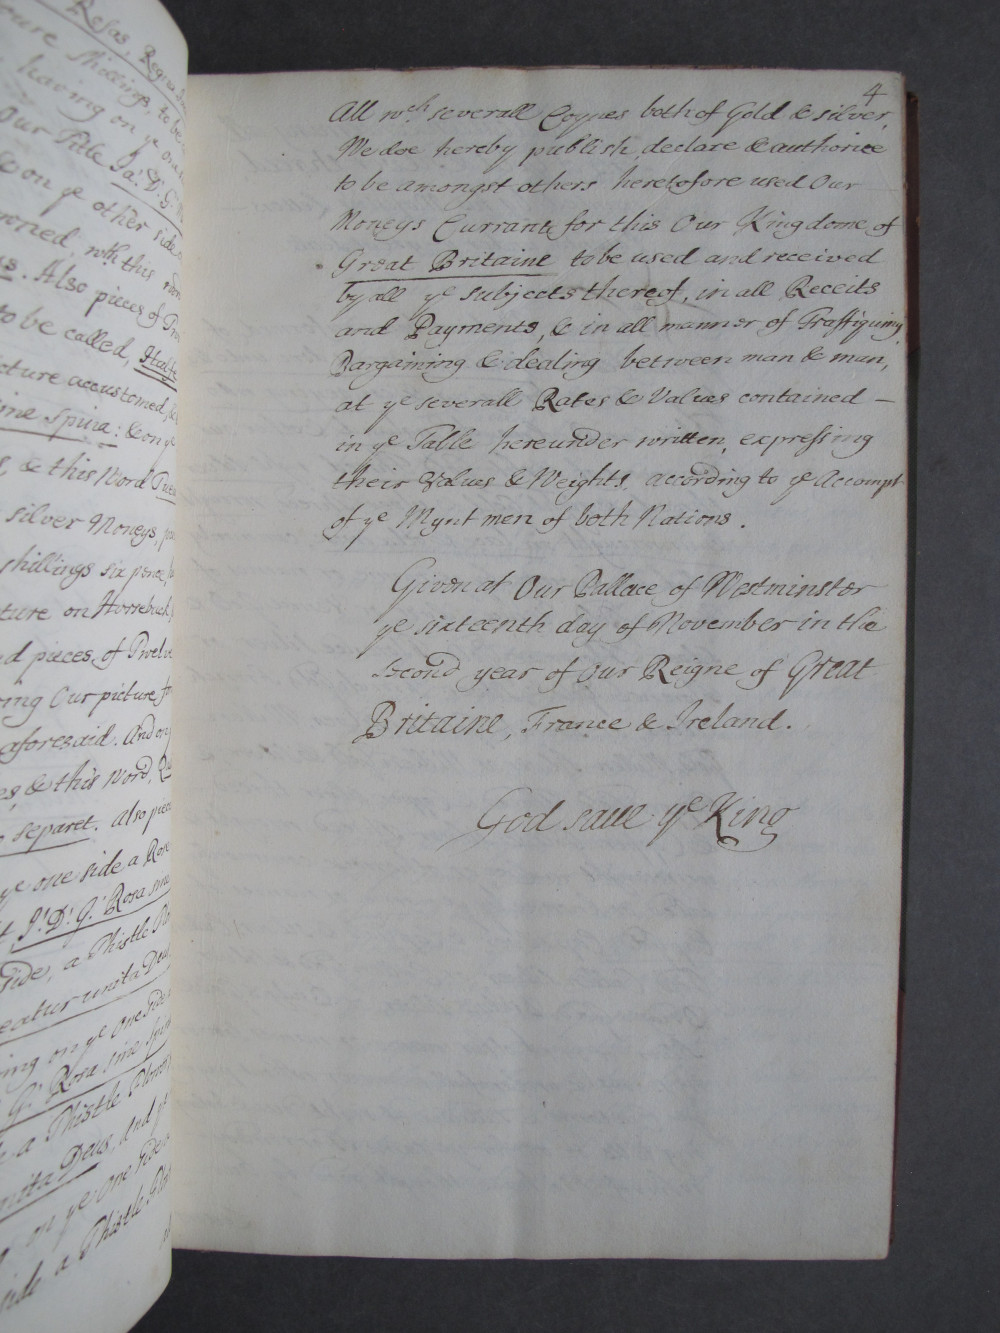 Resas, Regna
ture Shillings, to be
having on ye one
Our Title Ja: D: G:
on ye other side
rowned, wth this
us. Also pieces of Two
to be called, Halfe
icture accustomed,
ine Spina: & on ye
s, & this Word Tuea
silver Moneys,
shillings six pence,
ture on Horseback
nd pieces of Twelve
ving Our picture
aforesaid. And on
es, & this Word,
separet. Also
ye one side a Rose
J: D: G: Rosa sine
side, a Thistle
eatur unita Deus
ing on ye One side
G: Rosa sine
a Thistle Flower
unita Deus, And ye
on ye One side
side a Thistle
4
All wch severall Coynes both of Gold & silver,
We doe hereby publish, declare & authorice
to be amongst others heretofore used Our
Moneys Currant, for this Our Kingdome of
Great Britaine to be used and received
by all ye subjects thereof, in all Receits
and Payments, & in all manner of Traffiquing,
Bargaining & dealing between man & man,
at ye severall Rates & Values contained —
in ye Table hereunder written, expressing
their Values & Weights, according to ye Accompt
of ye Mynt men of both Nations.
Given at Our Pallace of Westminster
ye sixteenth day of November in the
second year of Our Reigne of Great
Britaine, France & Ireland.
God save ye King